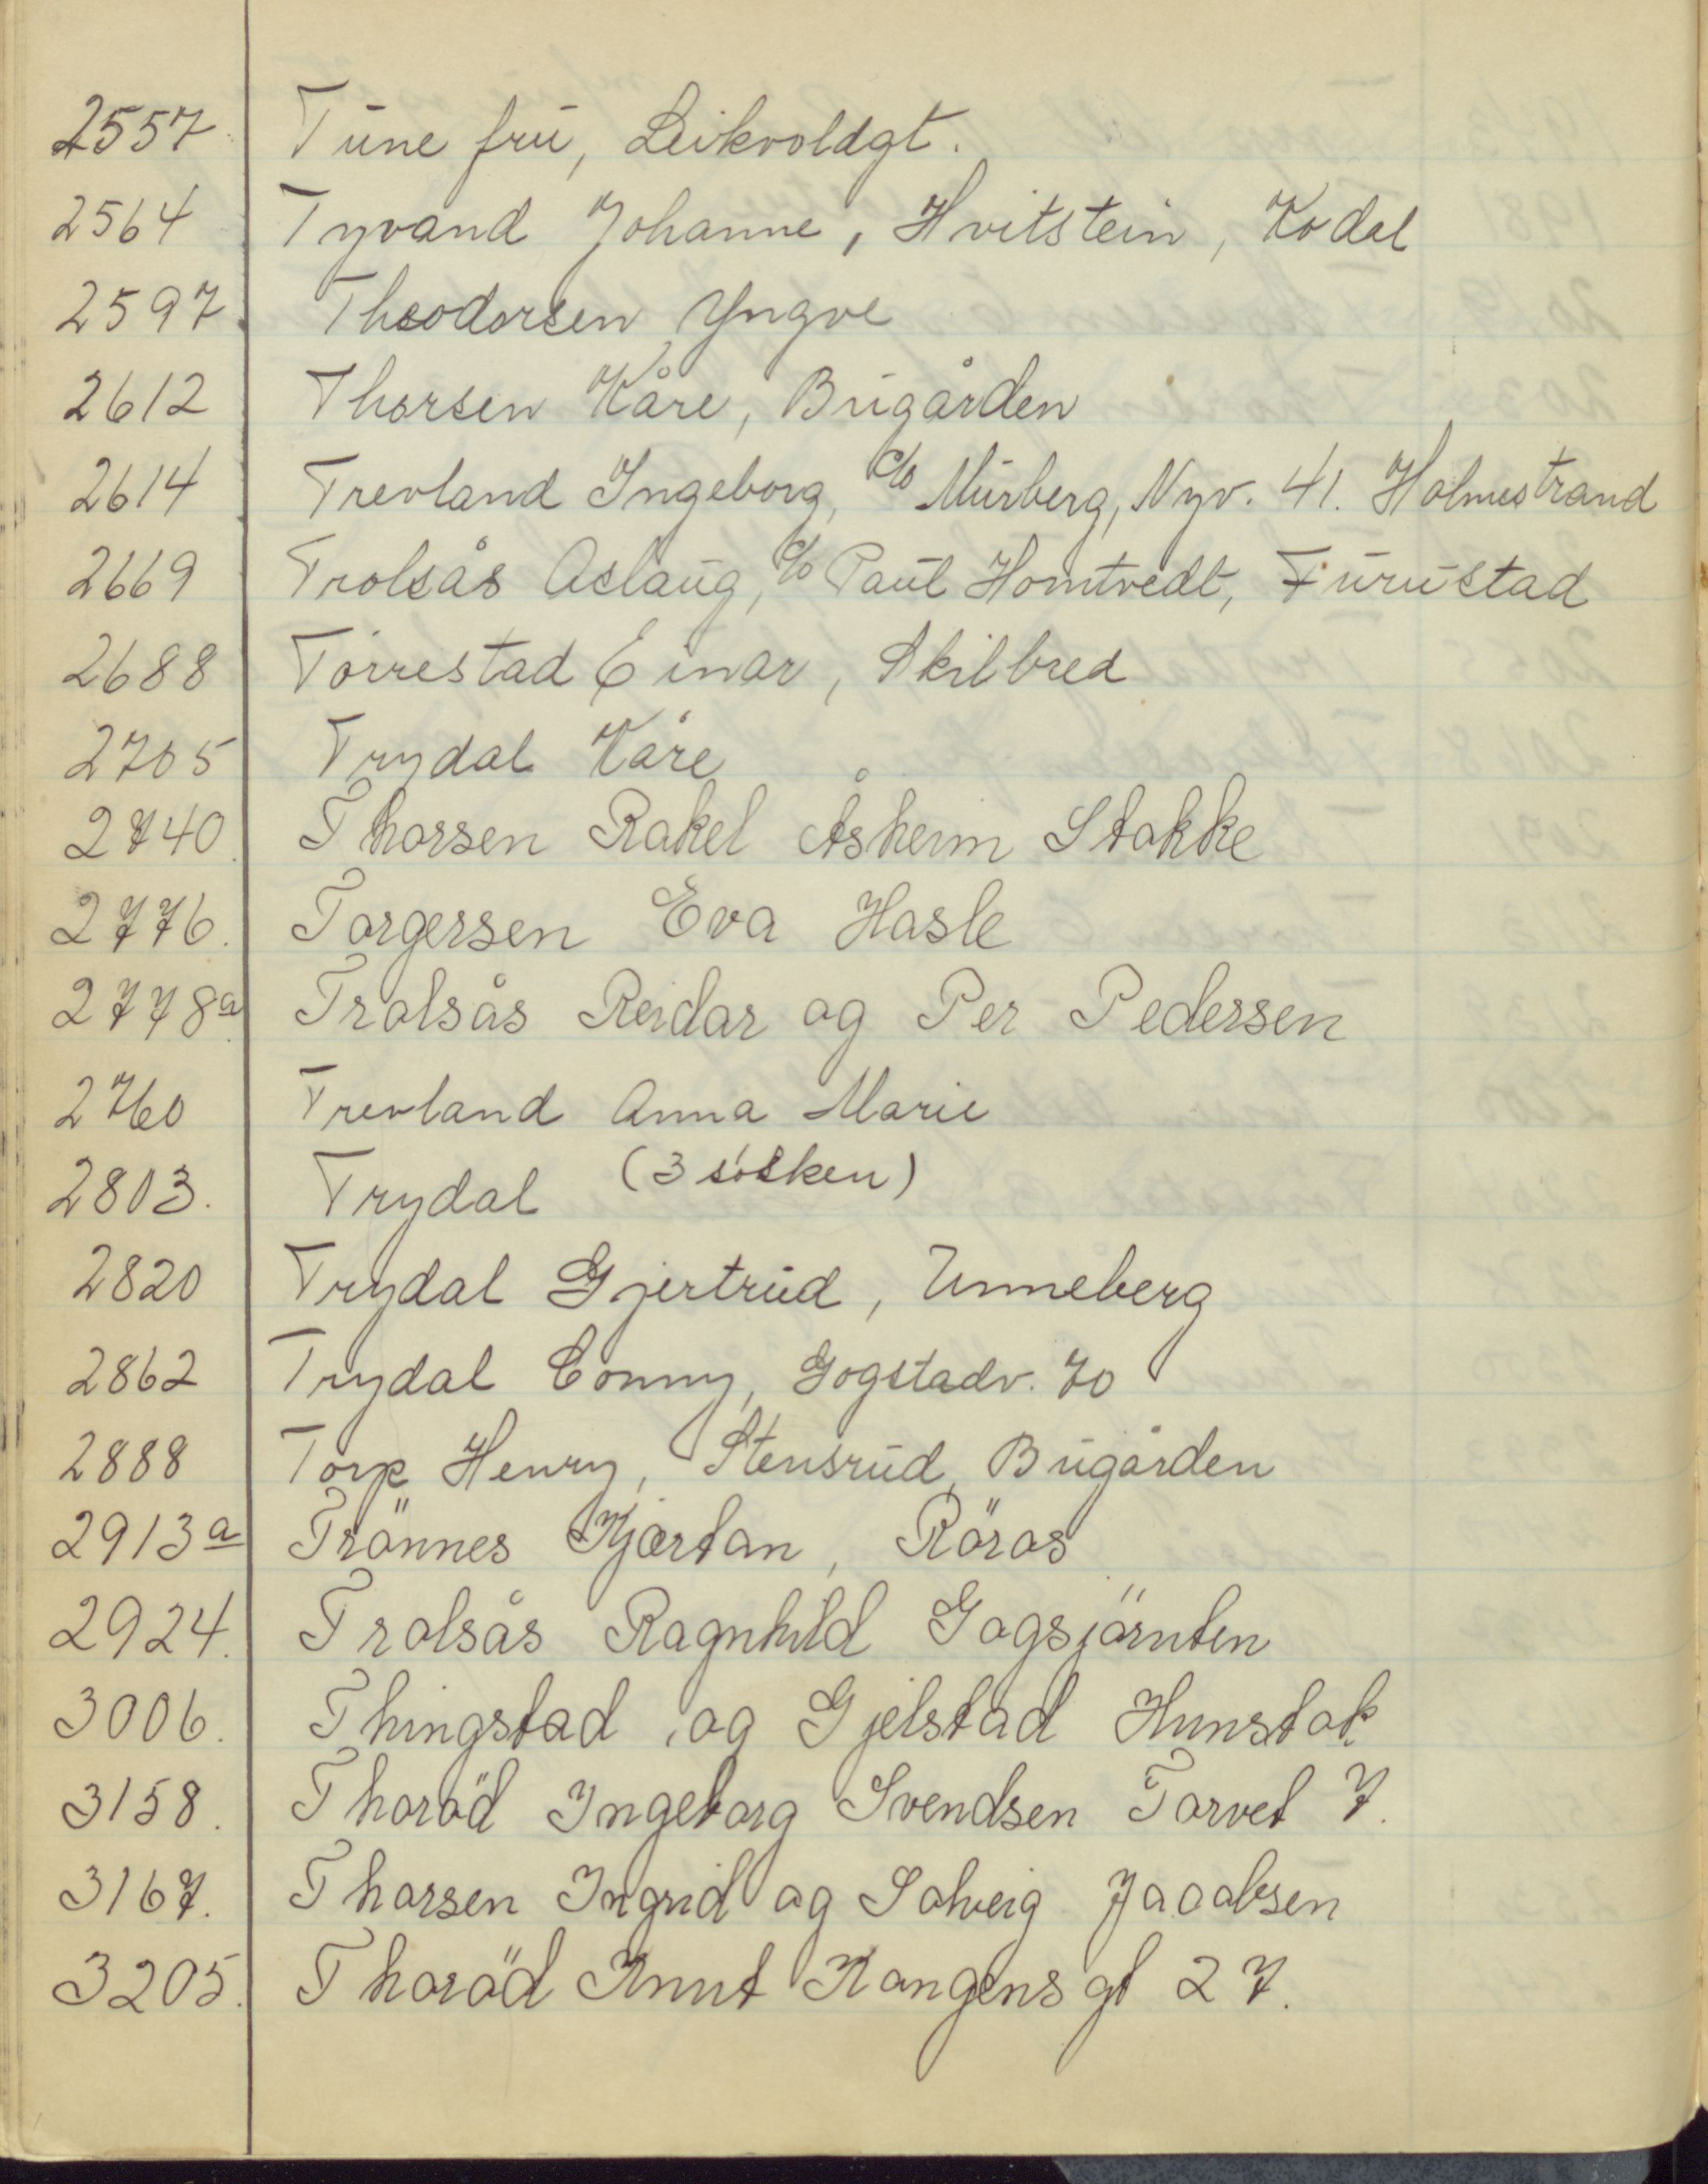 2557 Tune fru, Leikvoldgt.
2564 Tyvand Johanne, Hvitstein, Kodal
2597 Theodorsen Yngve
2612 Thorsen Kåre, Bugården
2614 Trevland Ingeborg, c/o Murberg, Nyv. 41. Holmestrand
2669 Trolsås Aslaug, c/o Paul Homtvedt, Furustad
2688 Törrestad Einar, Skilbred
2705 Trydal Kåre
2740. Thorsen Rakel Åsheim Stokke
2776. Torgersen Eva Hasle
2778a. Trolsås Reidar og Per Pedersen
2760 Trevland Anna Marie
2803. Trydal (3 søsken)
2820 Trydal Gjertrud, Unneberg
2862 Trydal Conny, Gogstadv. 70
2888 Torp Henry, Stensrud, Bugården
2913a Trönnes Kjartan, Röros
2924. Trolsås Ragnhild Gogsjörnten
3006. Thingstad og Gjelstad Hunstok
3158. Thoröd Ingeborg Svendsen Torvet 7.
3167. Thorsen Ingrid og Solveig Jacobsen
3205. Thoröd Knut Kongens gt 27.